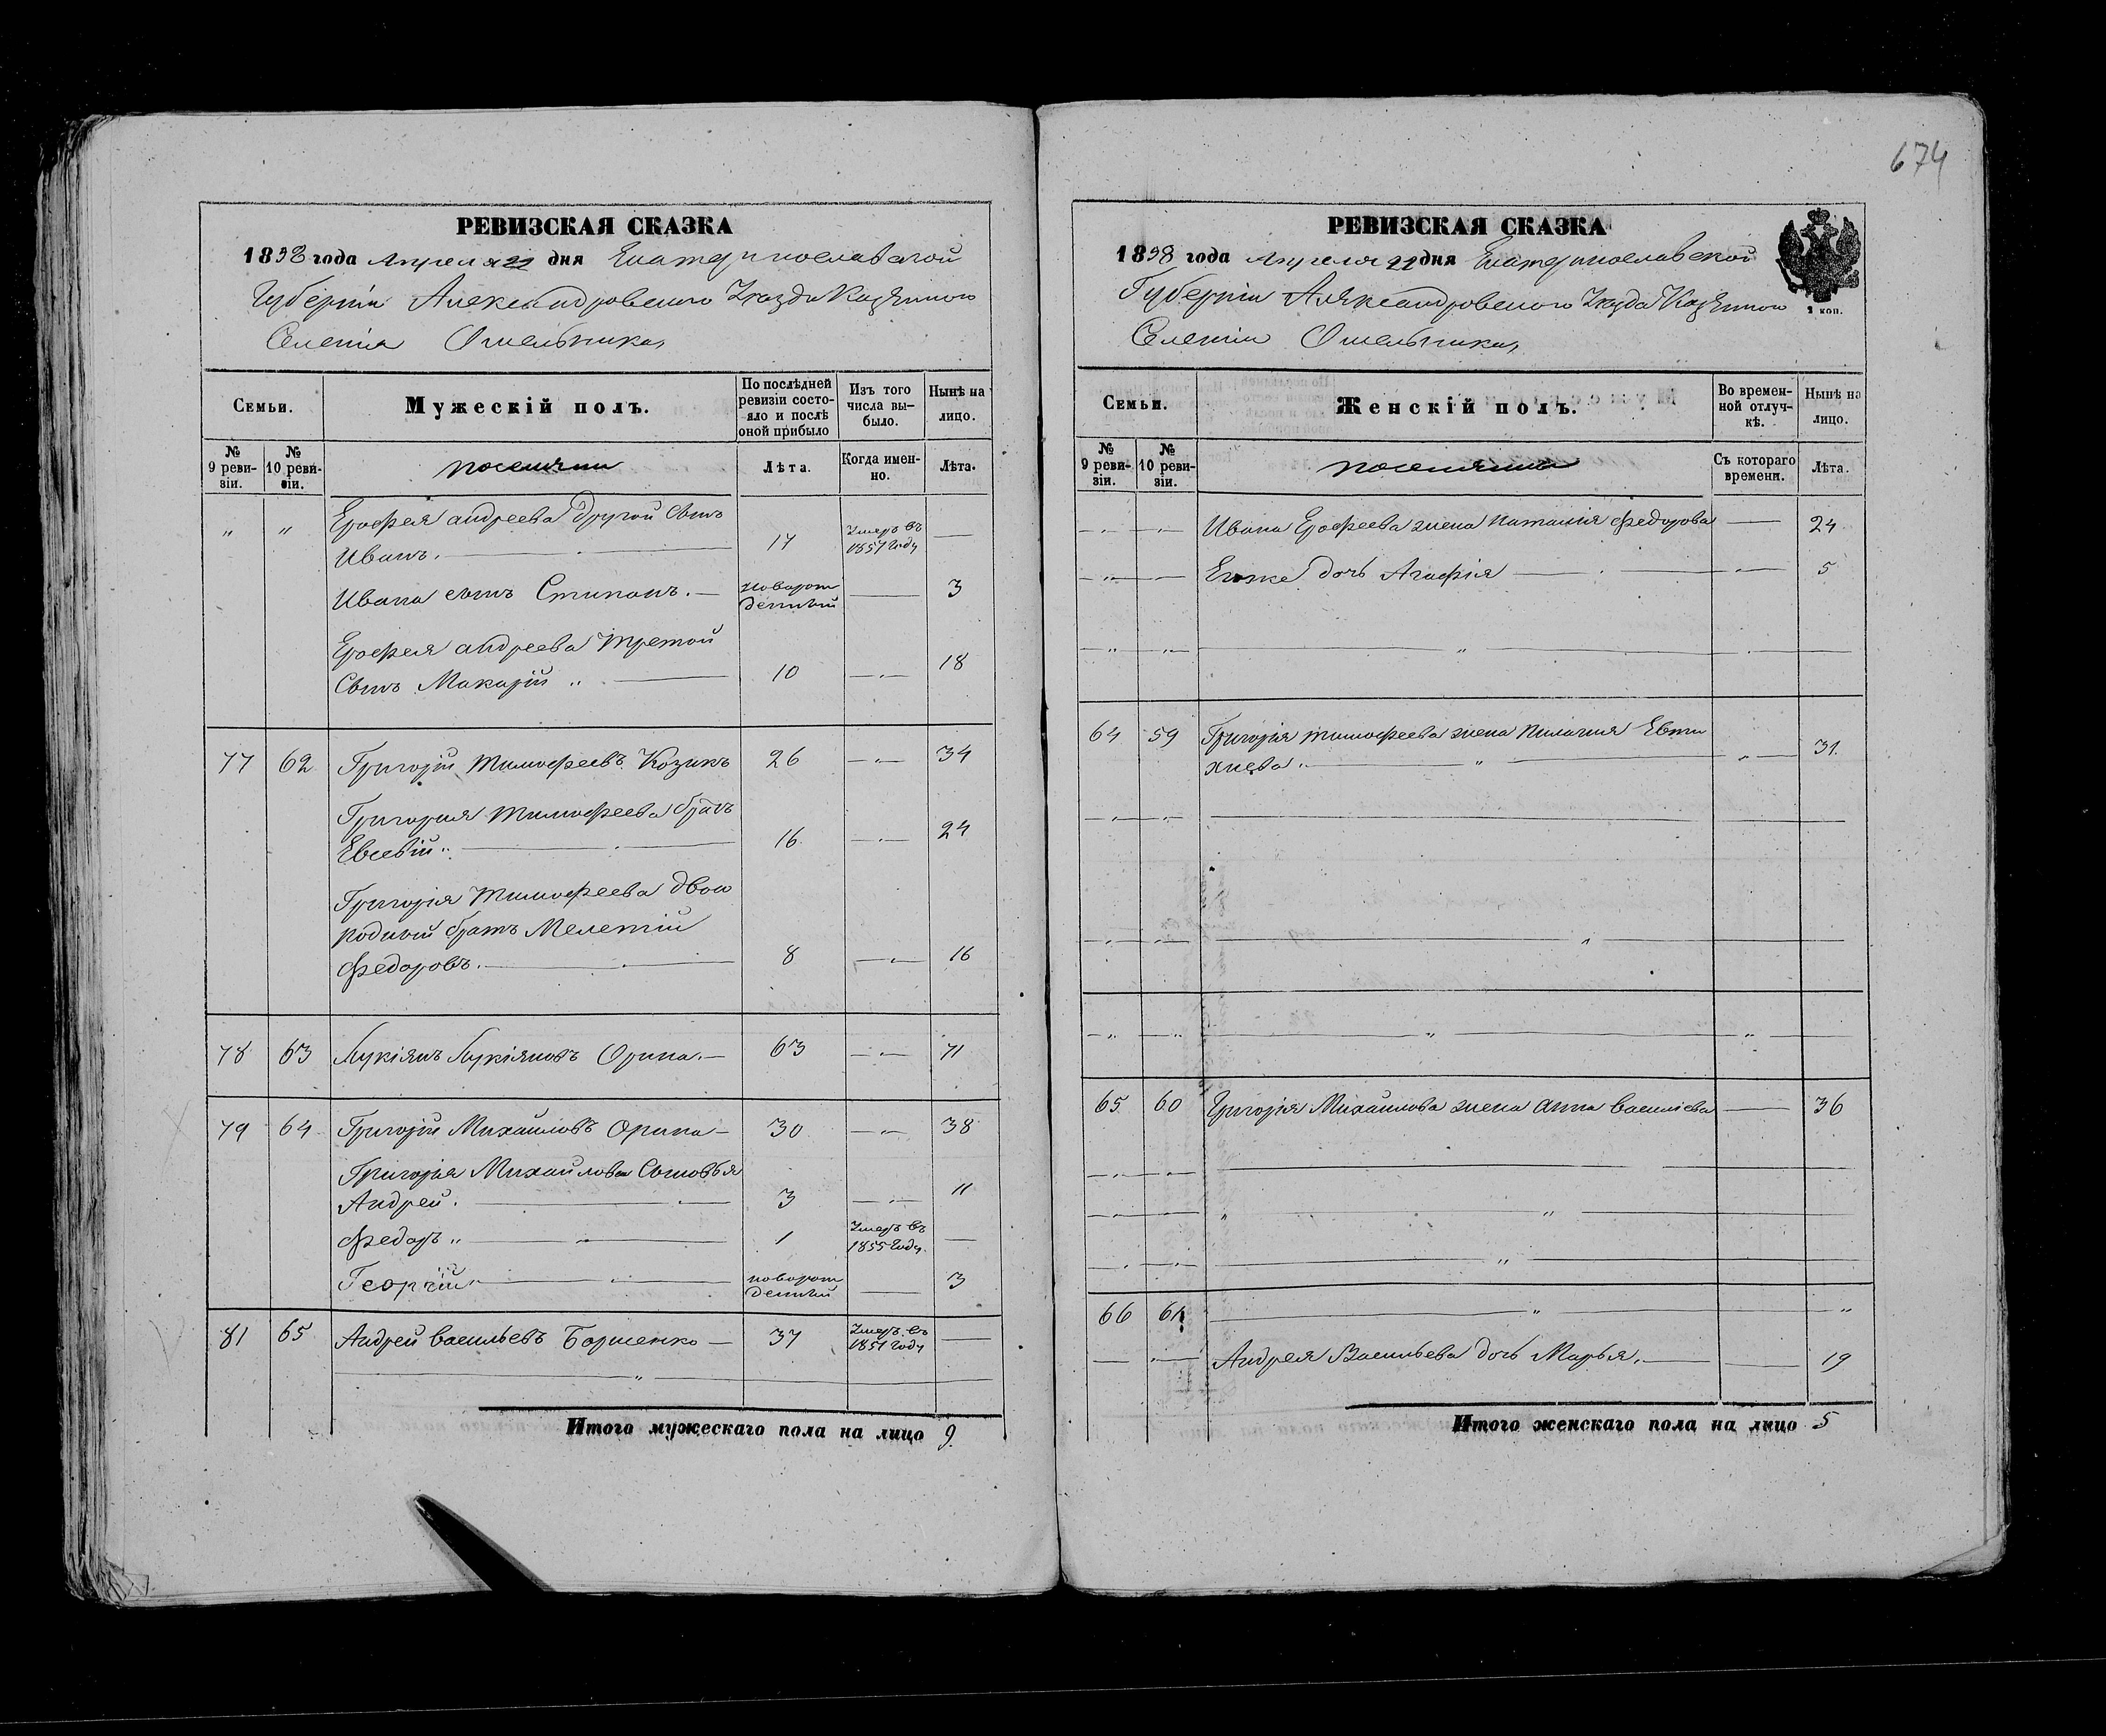 674
РЕВИЗСКАЯ СКАЗКА
1858 года Апреля 22 дня Екатеринославской
Губерніи Александровского Уезда Казенного
Селенія Омельника,
Семьи.
Мужескій полъ.
По послѣдней ревизіи состояло и послѣ оной прибыло
Изъ того числа выбыло.
Нынѣ на лицо.
№ 9 ревизіи.
№ 10 ревизіи.
поселяни
Лѣта.
Когда именно.
Лѣта.
" " Ерофея андреева другой Сынъ
Иванъ. 17 Умеръ въ 1851 Году —
Ивана сынъ Степанъ. — новорожденный — 3
Ерофея андреева третой
Сынъ Макарій " 10 — 18
77 62 Григорій тимофеевъ Козикъ 26 — " — 34
Григория тимофеева братъ
Евсевій. 16 — " — 24
Григорія Тимофеева двою
родный братъ Мелетій
Федоровъ. 8 — " — 16
78 63 Лукіянъ Лукіяновъ Орина. — 63 — " — 71
79 64 Григорій Михайловъ Орина — 30 — " — 38
Григорія Михайлова Сыновья
Андрей. 3 — " — 11
Федоръ " 1 Умеръ въ 1855 Году. —
Георгій " новорожденный — 3
81 65 Андрей васильевъ Борщенко — 37 Умеръ въ 1851 Году —
Итого мужескаго пола на лицо 9.
РЕВИЗСКАЯ СКАЗКА
1858 года Апреля 22 дня Екатеринославской
Губерніи Александровского Уезда Казенного
Селенія Омельника,
1 коп.
Семьи.
Женскій полъ.
Во временной отлучкѣ.
Нынѣ на лицо.
№ 9 ревизіи.
№ 10 ревизіи.
поселяни
Съ котораго времени.
Лѣта.
Ивана Ерофеева жена Наталія федорова — 24
Егоже дочь Агафія — 5
64 59 Григорія тимофеева жена Пилагия Евти
хиева. " 31.
65. 60 Григорія Михайлова жена анна василіева — 36
66 61 "
Андрея Васильева дочь Марья. — 19
Итого женскаго пола на лицо 5